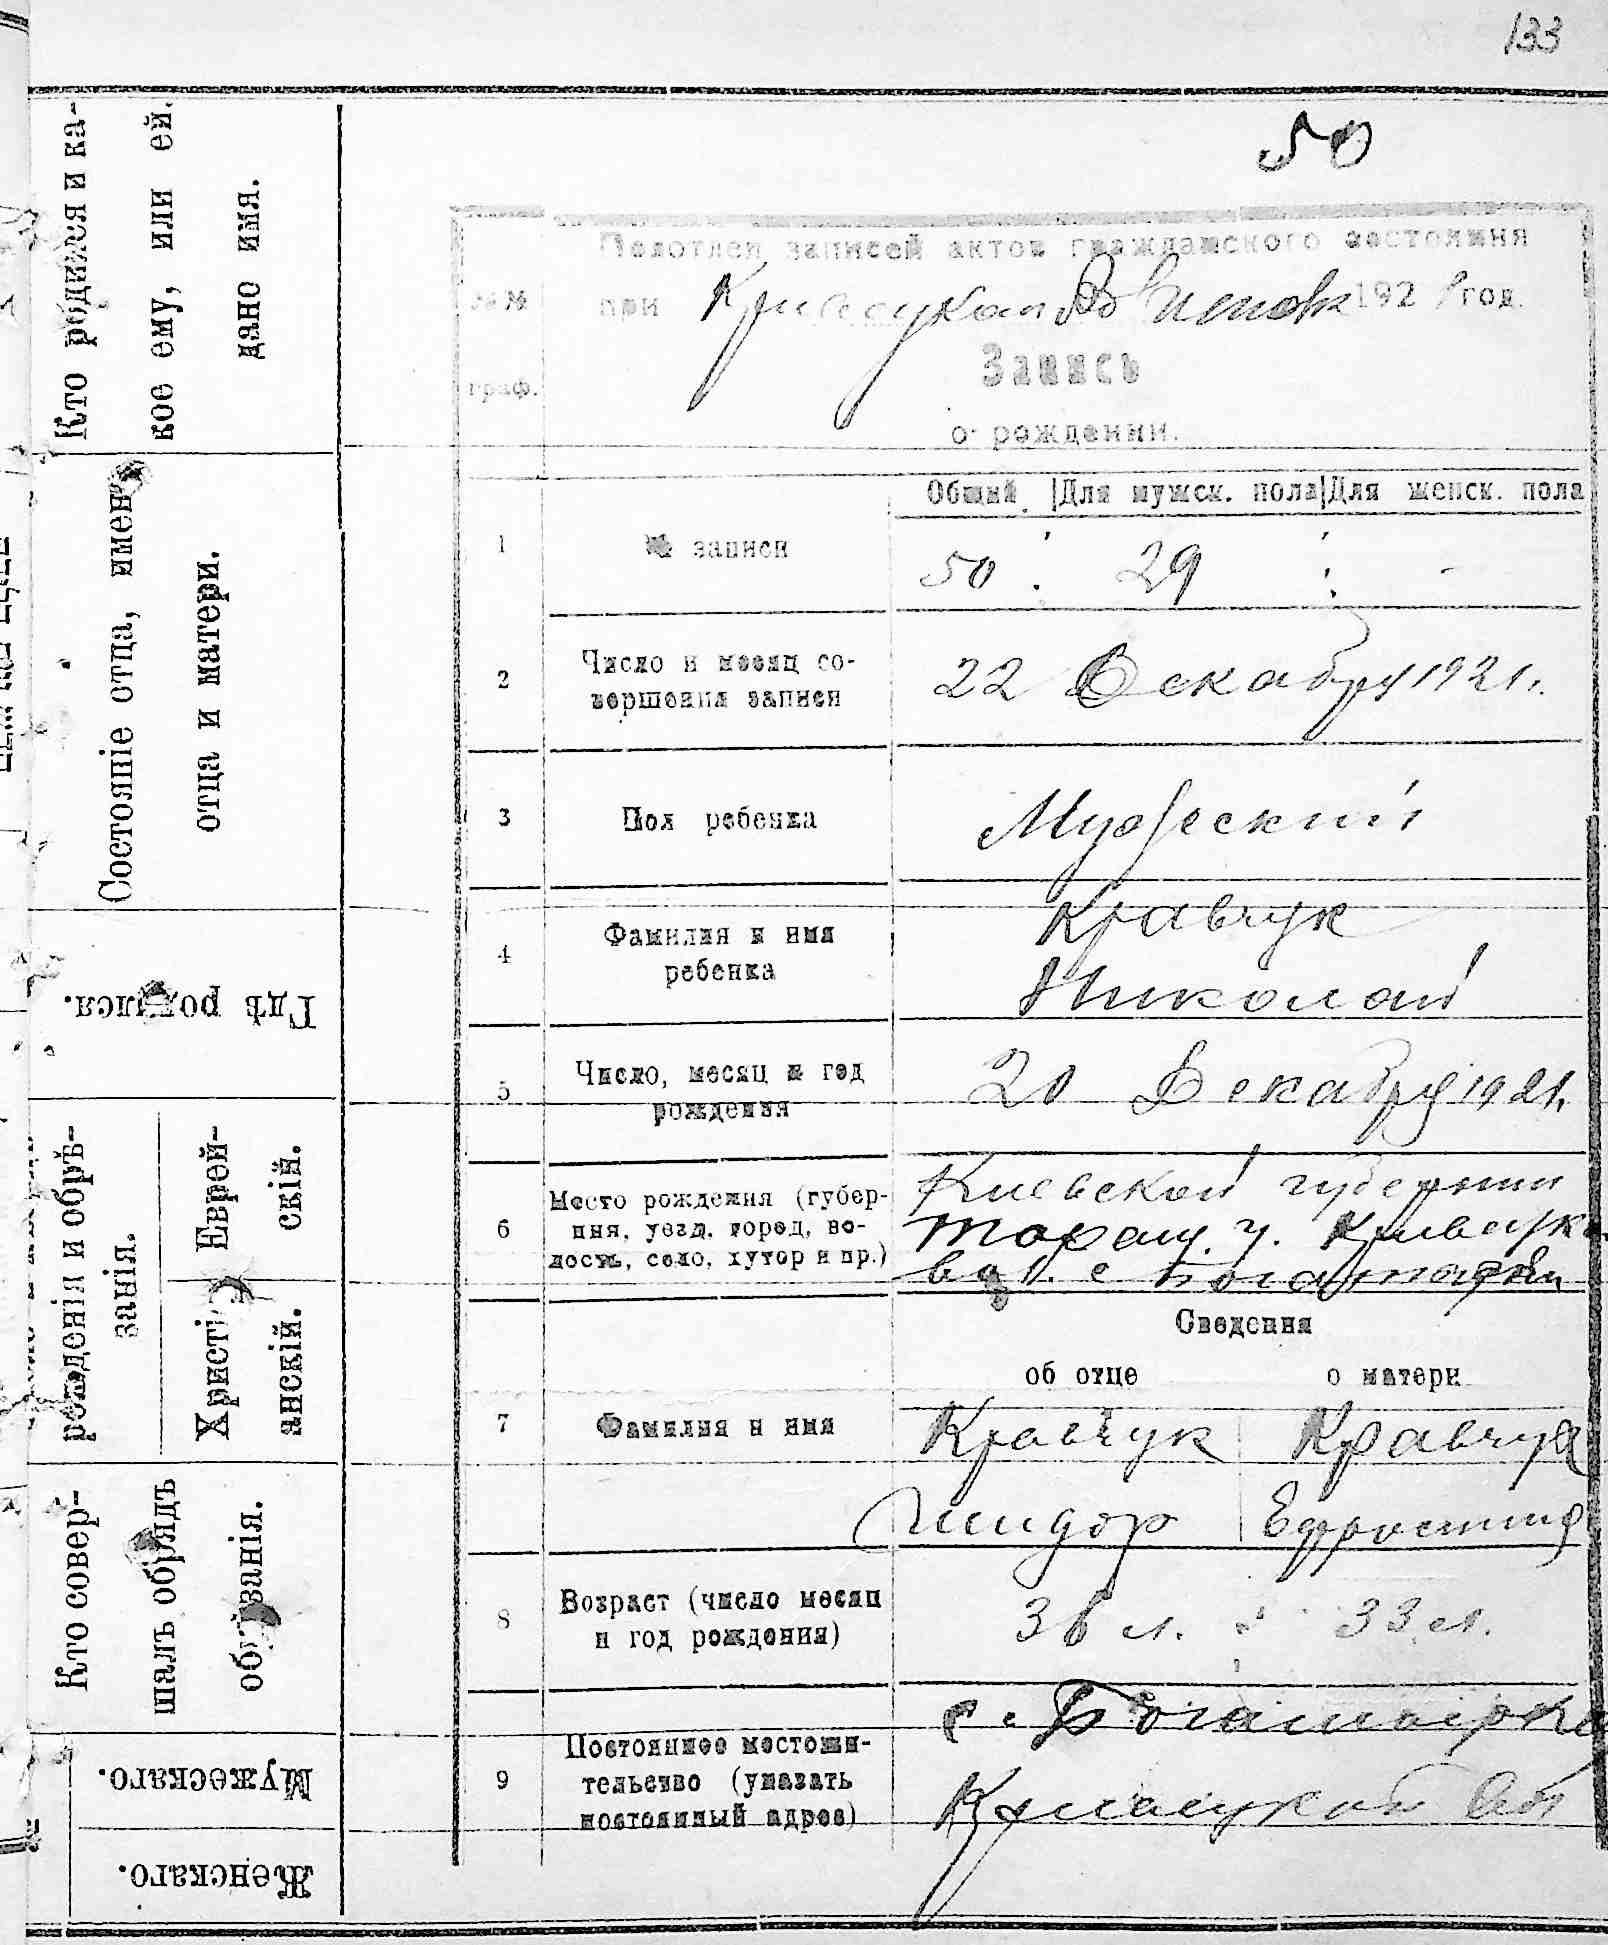 133
50
Кто родился и ка-
кое ему, или ей.
дано имя.
Состояніе отца, имен
отца и матери.
Гдѣ родился.
рожденія и обрѣ-
занія.
Христі
анскій.
Еврей-
скій.
Кто совер-
шалъ обрядъ
обрѣзанія.
Мужескаго.
Женскаго.
№№
граф.
Подотдел записей актов гражданского состояния
при 1921 год.
Запись
о рождении.
Общий Для мужск. пола Для женск. пола
1 № записи 50 29 -
2 Число и месяц со-
вершения записи
22 Декабря 1921 г.
3 Пол ребенка Мужеский
4 Фамилия и имя
ребенка
Кравчук
Николай
5 Число, месяц и год
рождения
20 Декабря 1921 г.
6 Место рождения (губер-
ния, уезд, город, во-
лость, село, хутор и пр.)
Киевской губернии
Таращ. у.
вол. с
Сведения
об отце о матери
7 Фамилия и имя Кравчук Кравчук
Сидор Ефросиния
8 Возраст (число месяц
и год рождения)
36 л. 33 л.
9 Постоянное местожи-
тельство (указать
постоянный адрес)
с. Богатырка